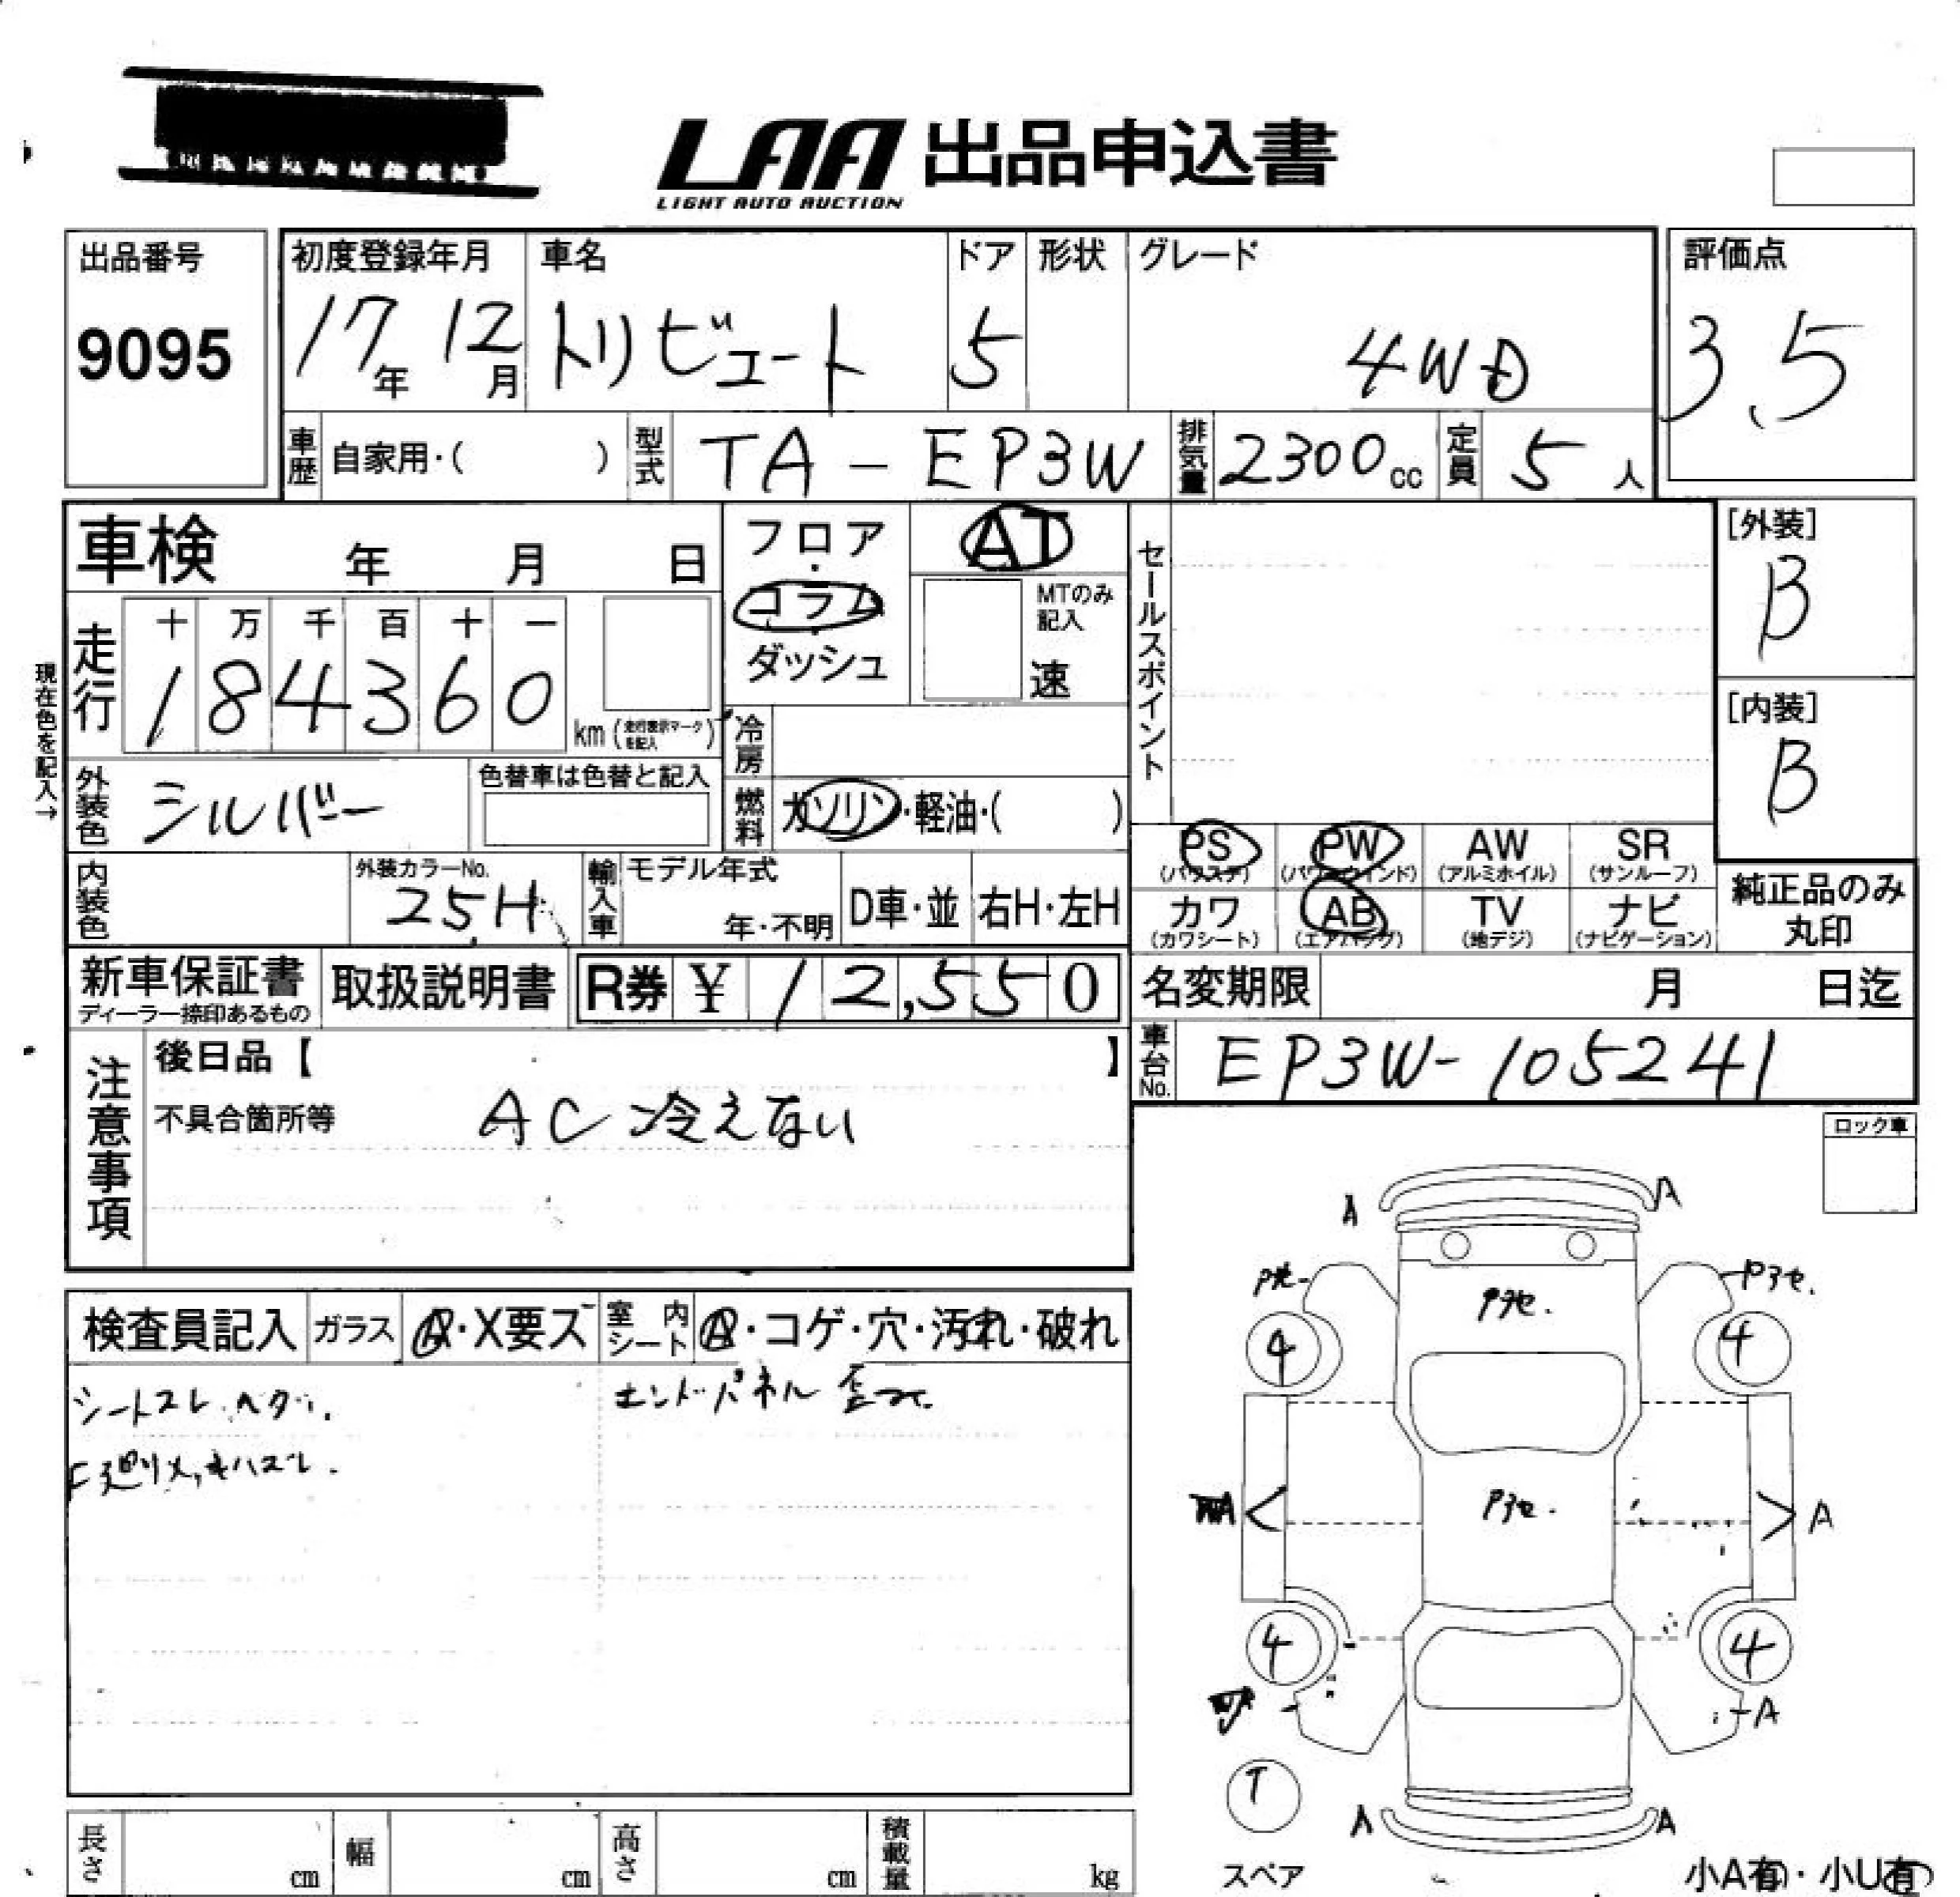 LAA 出品申込書
LIGHT AUTO AUCTION
出品番号
9095
初度登録年月
17年 12月
車名
トリビュート
ドア
5
形状
グレード
4WD
評価点
3.5
車歴 自家用・( )
型式 TA-EP3W
排気量 2300cc
定員 5人
車検 年 月 日
フロア・コラム・ダッシュ
AT
MTのみ記入
速
セールスポイント
[外装]
B
[内装]
B
現在色を記入→
走行 十 万 千 百 十 一
184360 km (走行表示マークを記入)
冷房
外装色 シルバー
色替車は色替と記入
燃料 ガソリン・軽油・( )
内装色
外装カラーNo.
25H
輸入車 モデル年式
年・不明
D車・並
右H・左H
PS (パワステ)
PW (パワーウインド)
AW (アルミホイル)
SR (サンルーフ)
カワ (カワシート)
AB (エアバッグ)
TV (地デジ)
ナビ (ナビゲーション)
純正品のみ丸印
新車保証書
ディーラー捺印あるもの
取扱説明書
R券 ¥ 12,550
名変期限 月 日迄
車台No. EP3W-105241
注意事項
後日品【 】
不具合箇所等 AC 冷えない
ロック車
検査員記入
ガラス A・X要ス
室内シート A・コゲ・穴・汚れ・破れ
シートスレ.ヘタリ.
エンドパネル
A
A
4
4
A
A
4
4
A
T
スペア
A
A
長さ cm
幅 cm
高さ cm
積載量 kg
小A有・小U有